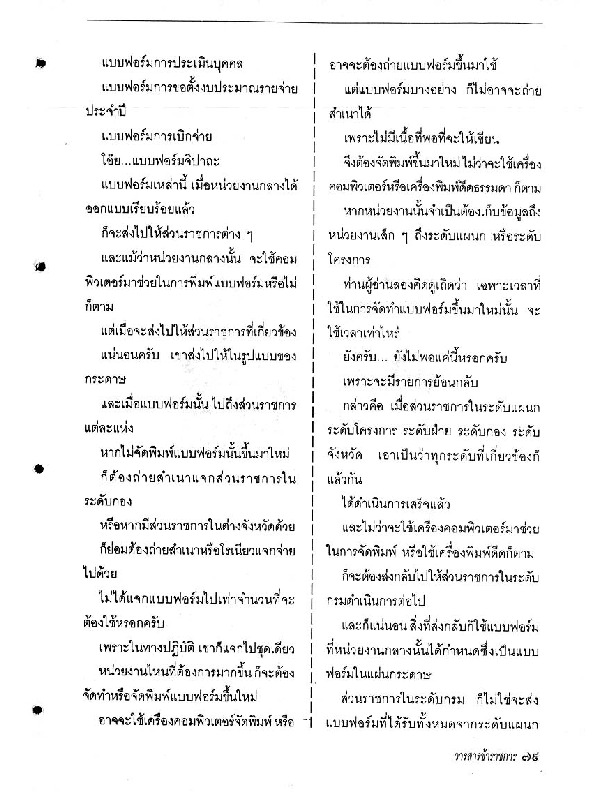 แบบฟอร์มการประเมินบุคคล
แบบฟอร์มการขอตั้งงบประมาณรายจ่าย
ประจำปี
แบบฟอร์มการเบิกจ่าย
โอ๊ย...แบบฟอร์มจิปาถะ
แบบฟอร์มเหล่านี้ เมื่อหน่วยงานกลางได้
ออกแบบเรียบร้อยแล้ว
ก็จะส่งไปให้ส่วนราชการต่าง ๆ
และแม้ว่าหน่วยงานกลางนั้น จะใช้คอม
พิวเตอร์มาช่วยในการพิมพ์แบบฟอร์มหรือไม่
ก็ตาม
แต่เมื่อจะส่งไปให้ส่วนราชการที่เกี่ยวข้อง
แน่นอนครับ เขาส่งไปให้ในรูปแบบของ
กระดาษ
และเมื่อแบบฟอร์มนั้น ไปถึงส่วนราชการ
แต่ละแห่ง
หากไม่จัดพิมพ์แบบฟอร์มนั้นขึ้นมาใหม่
ก็ต้องถ่ายสำเนาแจกส่วนราชการใน
ระดับกอง
หรือหากมีส่วนราชการในต่างจังหวัดด้วย
ก็ย่อมต้องถ่ายสำเนาหรือโรเนียวแจกจ่าย
ไปด้วย
ไม่ได้แจกแบบฟอร์มไปเท่าจำนวนที่จะ
ต้องใช้หรอกครับ
เพราะในทางปฏิบัติ เขาก็แจกไปชุดเดียว
หน่วยงานไหนที่ต้องการมากขึ้น ก็จะต้อง
จัดทำหรือจัดพิมพ์แบบฟอร์มขึ้นใหม่
อาจจะใช้เครื่องคอมพิวเตอร์จัดพิมพ์ หรือ
อาจจะต้องถ่ายแบบฟอร์มขึ้นมาใช้
แต่แบบฟอร์มบางอย่าง ก็ไม่อาจจะถ่าย
สำเนาได้
เพราะไม่มีเนื้อที่พอที่จะให้เขียน
จึงต้องจัดพิมพ์ขึ้นมาใหม่ ไม่ว่าจะใช้เครื่อง
คอมพิวเตอร์หรือเครื่องพิมพ์ดีดธรรมดา ก็ตาม
หากหน่วยงานนั้นจำเป็นต้องเก็บข้อมูลถึง
หน่วยงานเล็ก ๆ ถึงระดับแผนก หรือระดับ
โครงการ
ท่านผู้อ่านลองคิดดูเถิดว่า เฉพาะเวลาที่
ใช้ในการจัดทำแบบฟอร์มขึ้นมาใหม่นั้น จะ
ใช้เวลาเท่าไหร่
ยังครับ... ยังไม่พอแค่นี้หรอกครับ
เพราะจะมีรายการย้อนกลับ
กล่าวคือ เมื่อส่วนราชการในระดับแผนก
ระดับโครงการ ระดับฝ่าย ระดับกอง ระดับ
จังหวัด เอาเป็นว่าทุกระดับที่เกี่ยวข้องก็
แล้วกัน
ได้ดำเนินการเสร็จแล้ว
และไม่ว่าจะใช้เครื่องคอมพิวเตอร์มาช่วย
ในการจัดพิมพ์ หรือใช้เครื่องพิมพ์ดีดก็ตาม
ก็จะต้องส่งกลับไปให้ส่วนราชการในระดับ
กรมดำเนินการต่อไป
และก็แน่นอน สิ่งที่ส่งกลับก็ใช้แบบฟอร์ม
ที่หน่วยงานกลางนั้นได้กำหนดซึ่งเป็นแบบ
ฟอร์มในแผ่นกระดาษ
ส่วนราชการในระดับกรม ก็ไม่ใช่จะส่ง
แบบฟอร์มที่ได้รับทั้งหมดจากระดับแผนก
วารสารข้าราชการ ๗๙